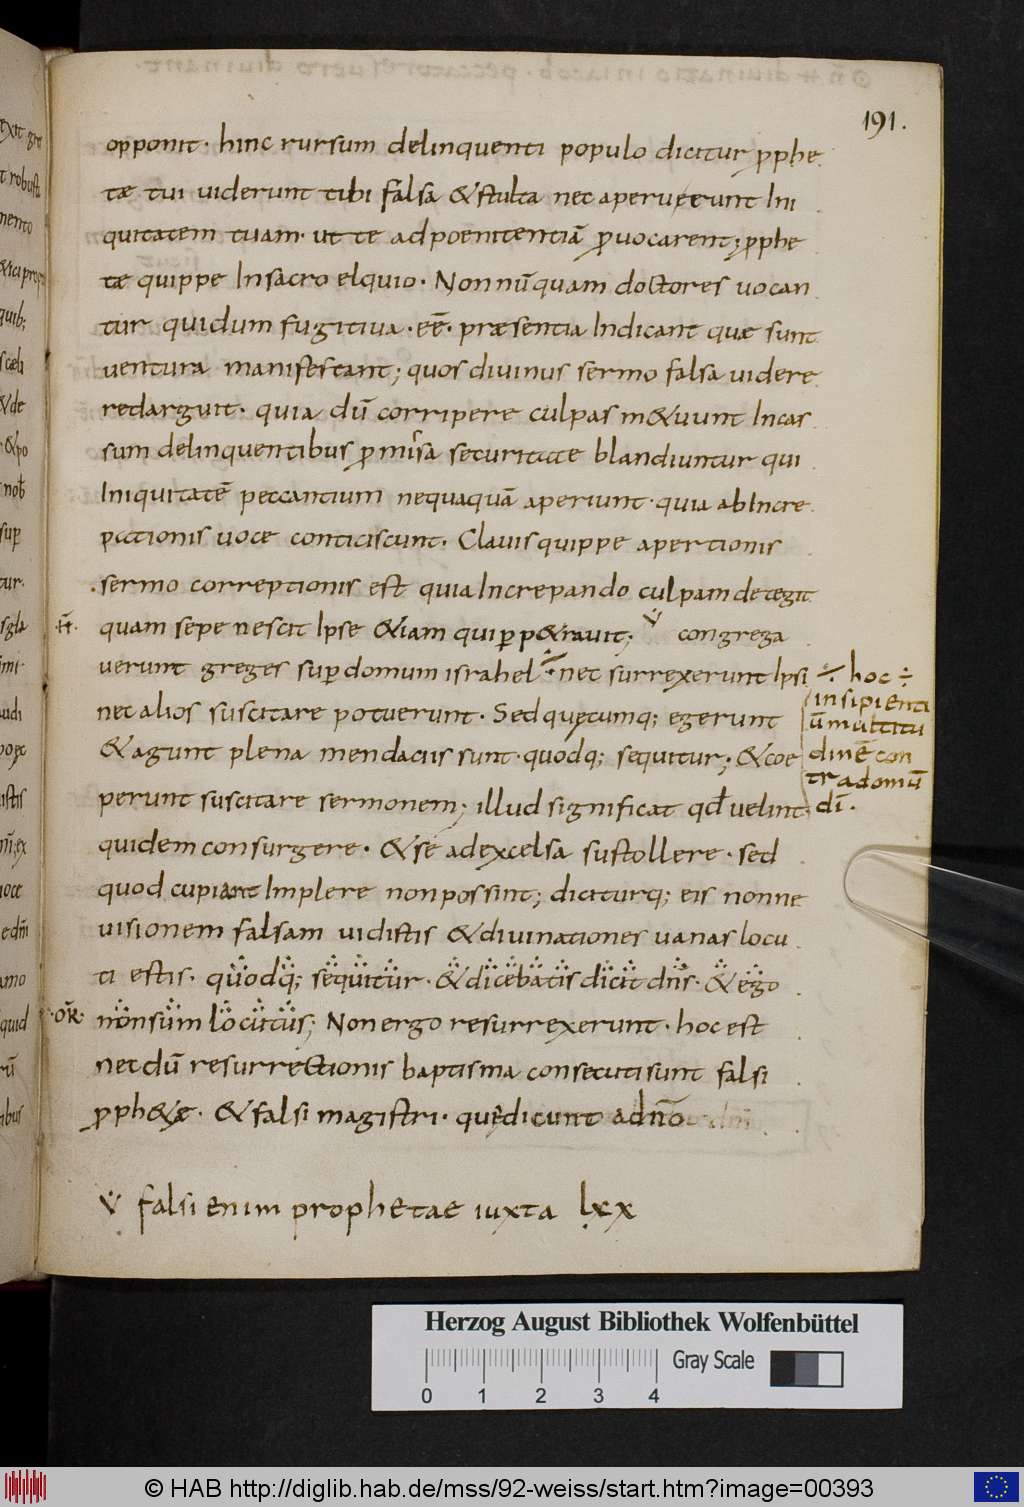 191.
opponit · hinc rursum delinquenti populo dicitur ꝓphe
tæ tui uiderunt tibi falsa & stulta nec aperuerunt Ini
quitatem tuam · ut te ad poenitentiā ꝓuocarent; ꝓphe
tæ quippe In sacro elquio · Non nū quam doctores uocan
tur qui dum fugitiua · eē · præsentia Indicant quæ sunt
uentura manifestant; quos diuinus sermo falsa uidere
redarguit · quia dū corripere culpas m&uunt Incas
sum delinquentibus ꝓmisa securitate blandiuntur qui
Iniquitatē peccantium nequaquā aperiunt · quia ab Incre
pationis uoce conticiscunt · Clauis quippe apertionis
sermo correptionis est quia Increpando culpam detegit
.ħ. quam sepe nescit Ipse &iam qui ꝑp&rauit; V congrega
uerunt greges suꝑ domum israhel ÷ nec surrexerunt Ipsi
nec alios suscitare potuerunt · Sed quęcumq; egerunt
& agunt plena mendaciis sunt · quodq; sequitur; & coe
perunt suscitare sermonem; illud significat qd̄ uelint
quidem consurgere · & se ad excelsa sustollere · sed
quod cupiant Implere non possint; diciturq; eis nonne
uisionem falsam uidistis & diuinationes uanas locu
ti estis · quodq; sequitur · & dicebatis dicit dn̄s · & ego
·OR̄· non sum locutus; Non ergo resurrexerunt · hoc est
nec dū resurrectionis baptisma consecuti sunt falsi
ꝓph&ę · & falsi magistri · quędicunt ad nō
÷ hoc ÷
insipienti
ū multitu
dinē con
tra domū
dī ·
V falsi enim prophetae iuxta lxx
Herzog August Bibliothek Wolfenbüttel
Gray Scale
0 1 2 3 4
© HAB http://diglib.hab.de/mss/92-weiss/start.htm?image=00393